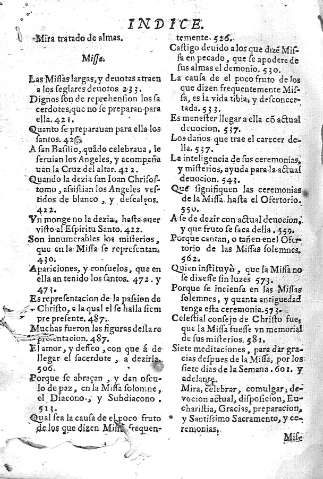 INDICE.
Mira tratado de almas.
Missa.
Las Missas largas, y deuotas atraen
a los seglares deuotos 233.
Dignos son de reprehension los sa
cerdotes, que no se preparan para
ella. 421.
Quanto se preparauan para ella los
santos. 425
A san Basilio, quãdo celebraua, le
seruian los Angeles, y acompaña
uan la Cruz del altar. 422.
Quando la dezia san Ioan Chrisos-
tomo, assistian los Angeles ves-
tidos de blanco, y descalços.
422.
Vn monge no la dezia, hasta auer
visto al Espiritu Santo. 422.
Son innumerables los misterios,
que en la Missa se representan.
430.
Apariciones, y consuelos, que en
ella an tenido los santos. 472. y
473.
Es representacion de la passion de
Christo, a la qual el se halla siem
pre presente. 487.
Muchas fueron las figuras desta re
presentacion. 487.
El amor, y desseo, con que á de
llegar el sacerdote, a dezirla.
506.
Porque se abraçan, y dan oscu-
lo de paz, en la Missa solemne,
el Diacono, y Subdiacono.
513.
Qual sea la causa de el poco fruto
de los que dizen Missa frequen-
temente. 526.
Castigo deuido a los que dizẽ Mis-
sa en pecado, que se apodere de
sus almas el demonio. 530.
La causa de el poco fruto de los
que dizen frequentemente Mis-
sa, es la vida tibia, y desconcer-
tada. 533.
Es menester llegar a ella cõ actual
deuocion. 537.
Los daños que trae el carecer de-
lla. 537.
La inteligencia de sus ceremonias,
y misterios, ayuda para la actual
deuocion. 543.
Què signifiquen las ceremonias
de la Missa hasta el Ofertorio.
550.
A se de dezir con actual deuocion,
y que fruto se saca della. 559.
Porque cantan, o tañen en el Ofer-
torio de las Missas solemnes.
562.
Quien instituyò, que la Missa no
se dixesse sin luzes 573.
Porque se inciensa en las Missas
solemnes, y quanta antiguedad
tenga esta ceremonia. 573.
Celestial consejo de Christo fue,
que la Missa fuesse vn memorial
de sus misterios. 581.
Siete meditaciones, para dar gra-
cias despues de la Missa, por los
siete dias de la Semana. 601. y
adelante.
Mira, celebrar, comulgar, de-
uocion actual, disposicion, Eu-
charistia, Gracias, preparacion,
y Santissimo Sacramento, y ce-
remonias.
Mise